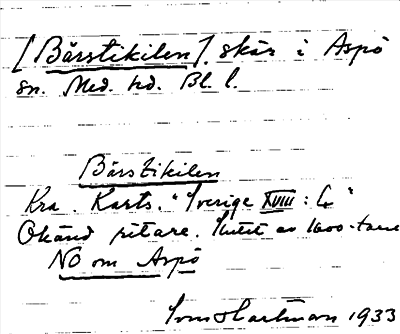 [Bärstikilen]. skär i Aspö
sn. Med. hd. Bl. l.
Bärstikilen
Kra. Karts. "Sverige XVIII: 4"
Okänd ritare. Slutet av 1600-talet
NO om Aspö
Hartman 1933